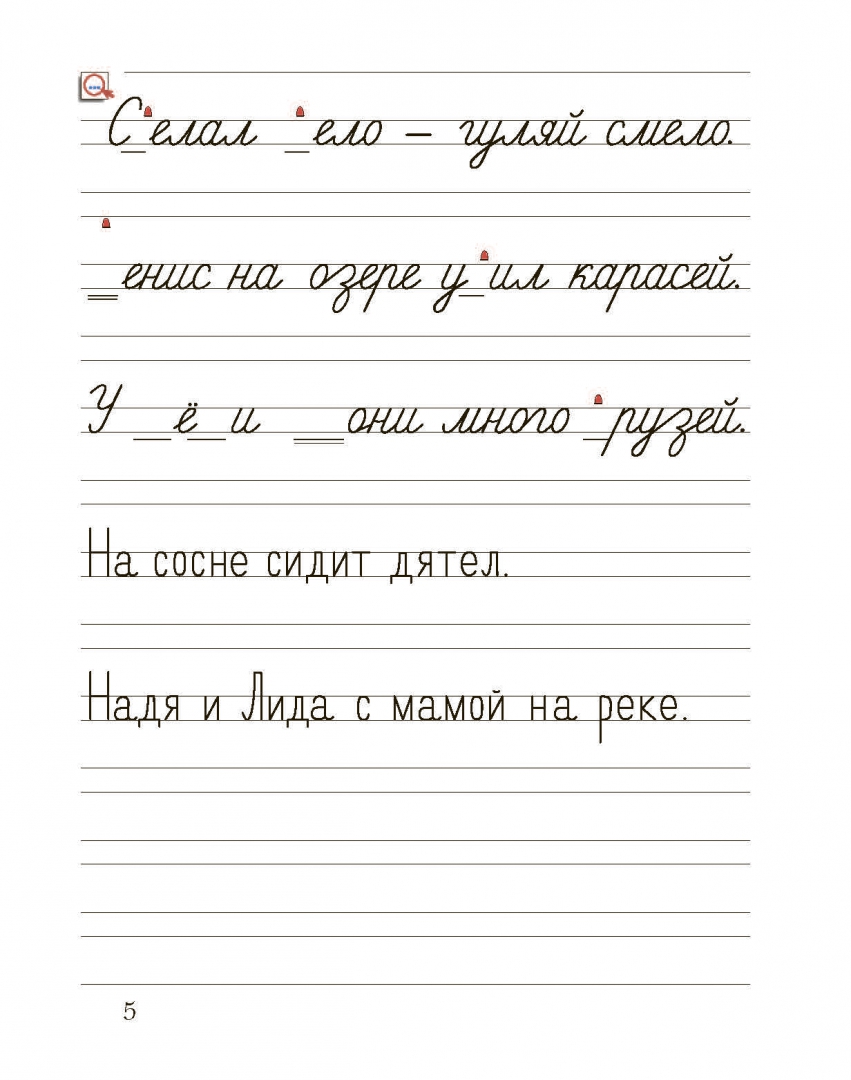 С_елал _ело – гуляй смело.
_енис на озере у_ил карасей.
У _ё_и _они много _рузей.
На сосне сидит дятел.
Надя и Лида с мамой на реке.
5